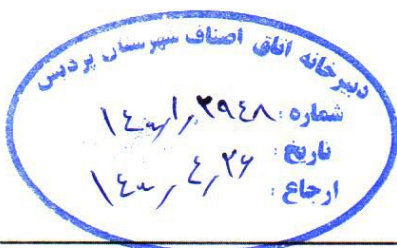 دبیرخانه اتاق اصناف شهرستان پردیس
شماره: ۱۴۰۰/۱/۲۹۴۸
تاریخ: ۱۴۰۰/۴/۲۶
ارجاع: